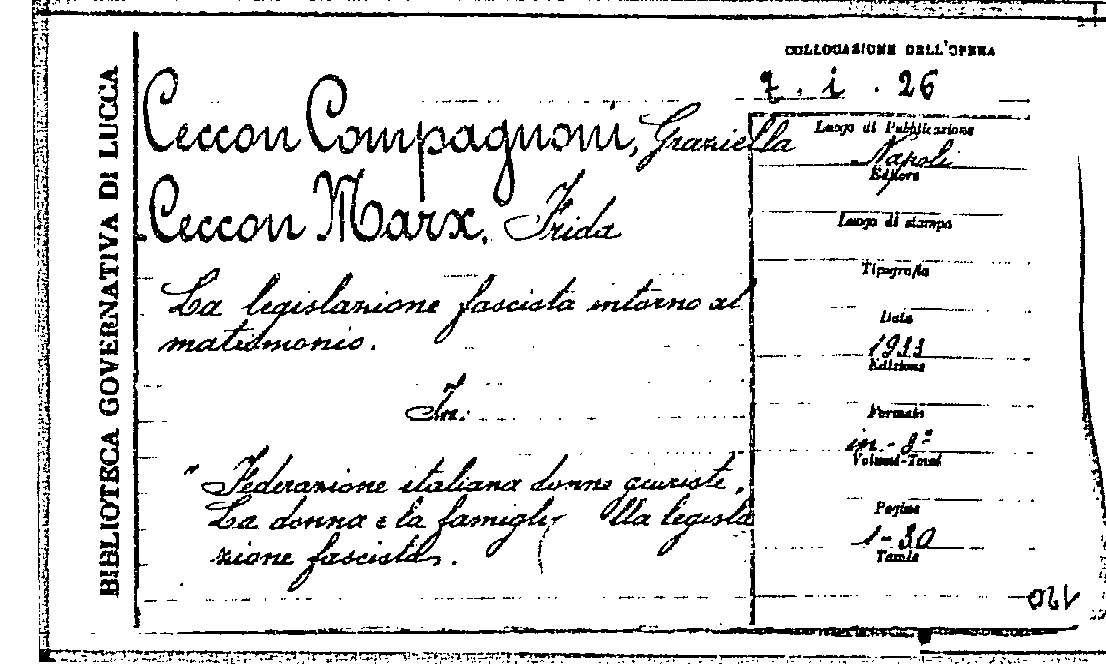 BIBLIOTECA GOVERNATIVA DI LUCCA
COLLOCAZIONE DELL'OPERA
7. i. 26
Ceccon Compagnoni, Graziella
Ceccon Marx, Frida
La legislazione fascista intorno al
matrimonio.
In:
" Federazione italiana donne giuriste,
La donna e la lla legisla
zione fascista.
Luogo di Pubblicazione
Napoli
Editore
Luogo di stampa
Tipografia
Data
1933
Edizione
Formato
in-8°
Volumi-Tomi
Pagine
1-30
Tavole